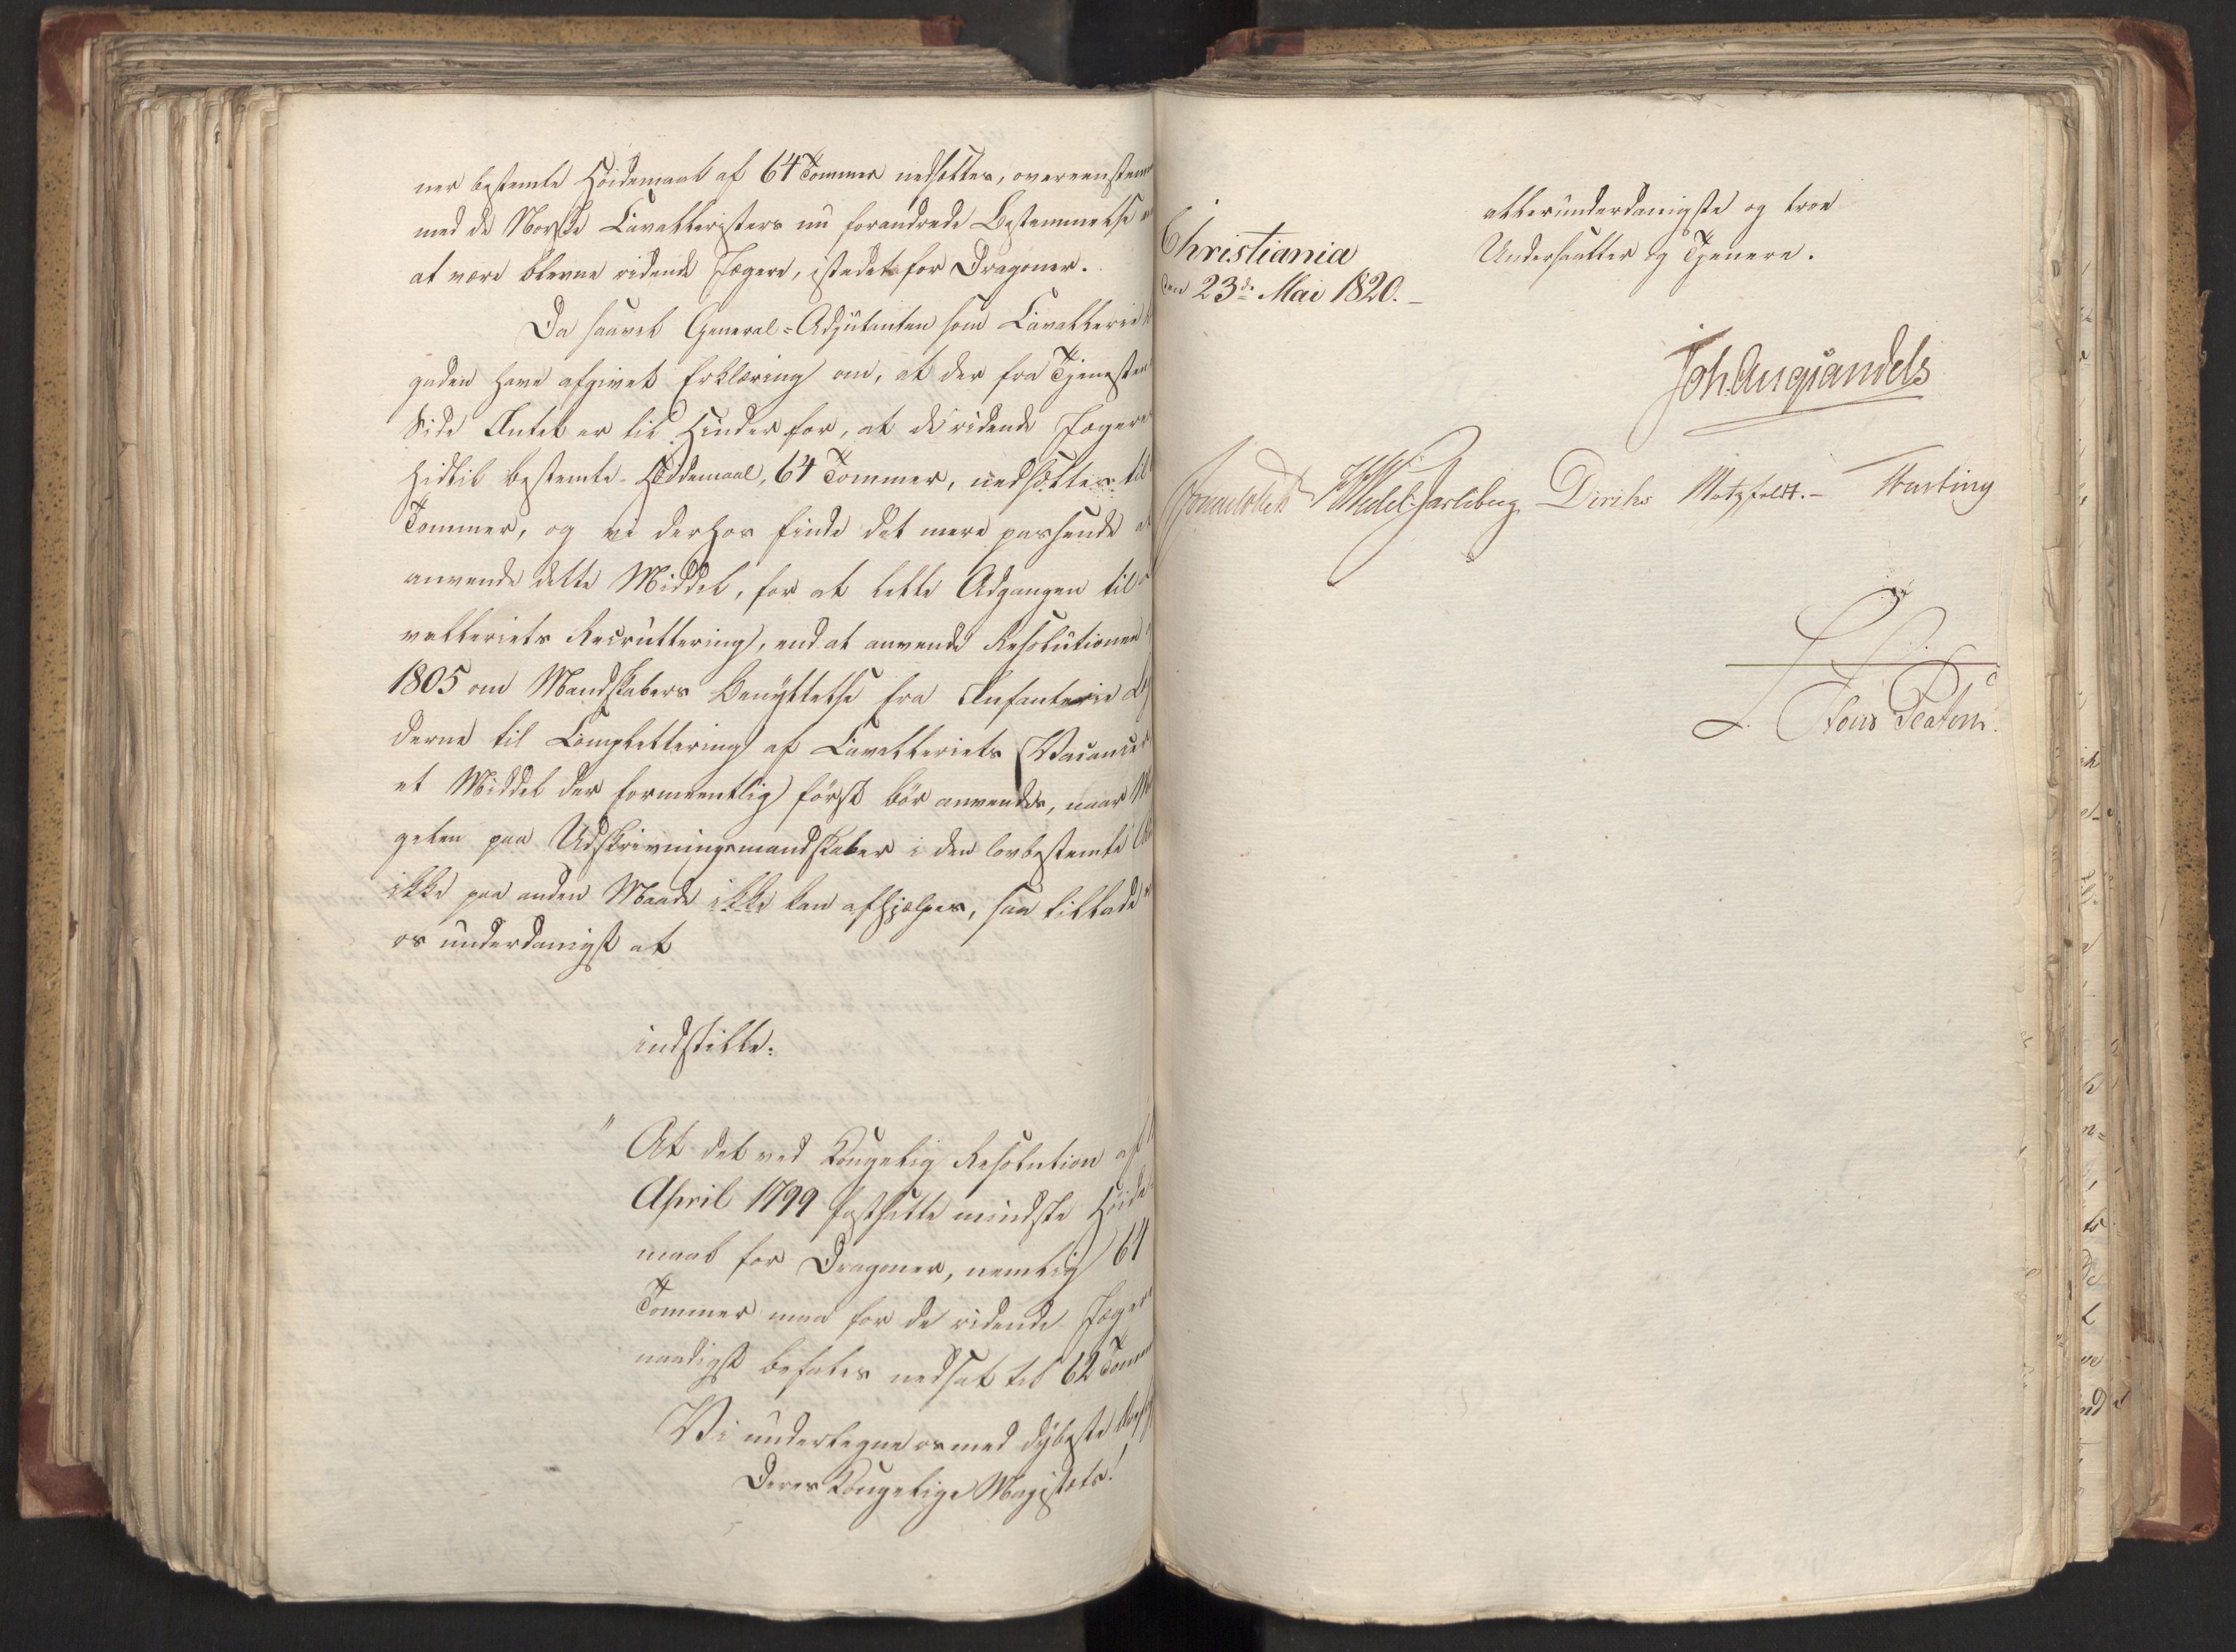 ner bestemte Höidemaal af 64 Tommer nedsættes, overeenstem
med de Norske Cavalleristers nu forandrede Bestemmelse
at være blevne ridende Jægere, istedetfor Dragoner.
Da saavel General-Adjutanten som Cavallerie
gaden have afgivet Erklæring om, at der fra Tjenesten
Side Intet er til Hinder for, at de ridende Jægere
hidtil bestemte Höidemaal, 64 Tommer, nedsættes til
Tommer, og vi derhos finde det mere passende
anvende dette Middel, for at lette Adgangen til
valleriets Recruttering, end at anvende Resolutionen
1805 om Mandskabers Benyttelse fra Infanterie
derne til Complettering af Cavalleriets Vacancer
et Middel der formeentlig først bör anvendes, naar
gelen paa Udskrivningsmandskaber i den lovbestemte
ikke paa anden Maade ikke kan afhjælpes, saa tillade
os underdanigst at
indstille:
" At det ved Kongelig Resolution af
April 1799 fastsatte mindste Höide
maal for Dragoner, nemlig 64
Tommer maa for de ridende Jægere
naadigst befales nedsat til 62 Tomm
Vi undertegne os med dybeste
Deres Kongelige Majestets!
allerunderdanigste og troe
Undersaatter og Tjenere.
Christiania
den 23de Mai 1820.
Joh. Aug. Sandels
Sommerhielm HWedel-Jarlsberg Diriks Motzfeldt. Fasting
L. Nous Platou